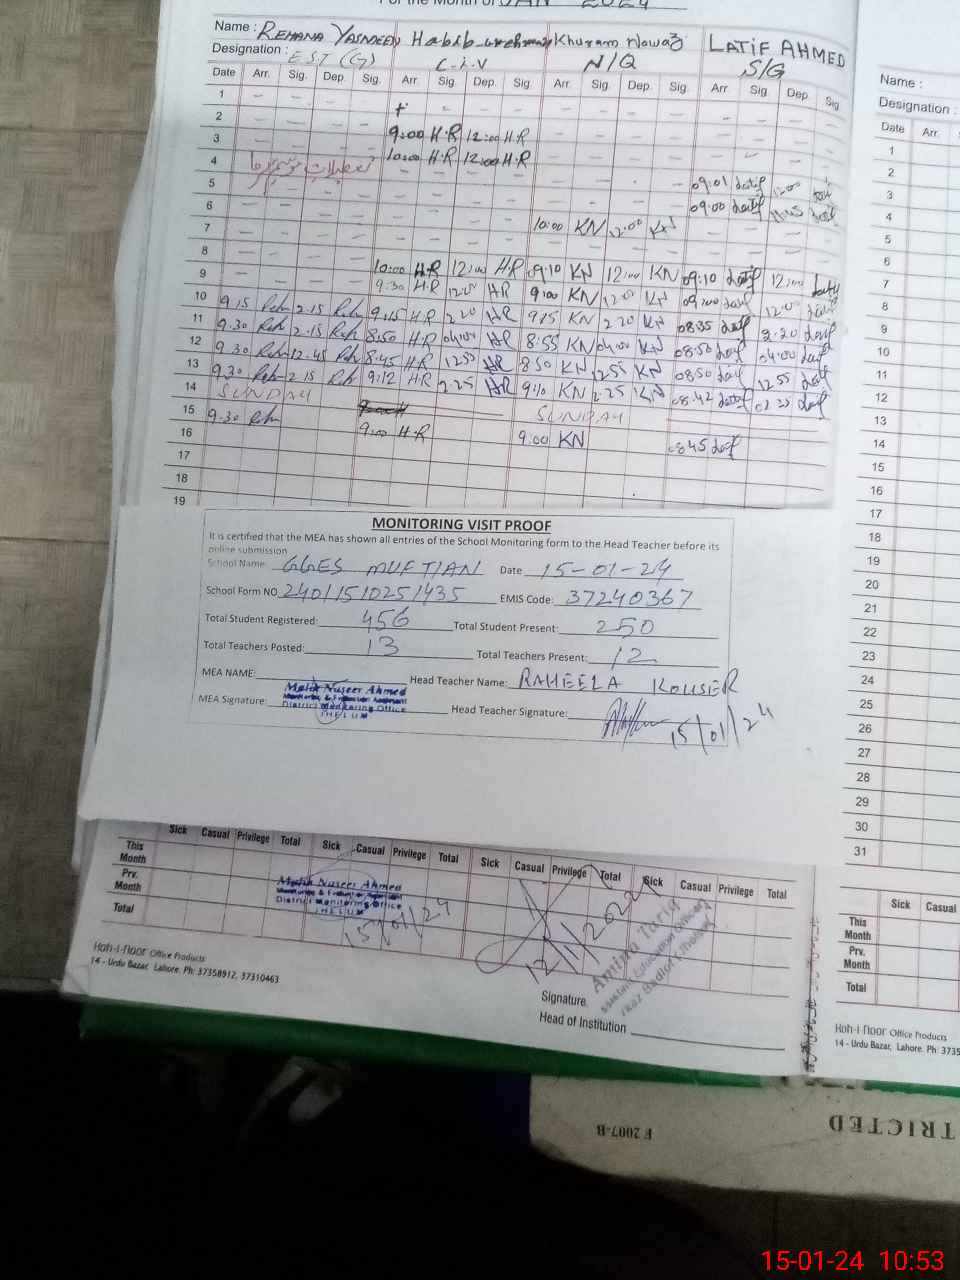 For the Month of JAN 2024
Name : REHANA YASMEEN Habib-urehman Khuram Nawaz LATIF AHMED
Designation : EST (G) C-IV N/Q S/G
Date Arr. Sig. Dep. Sig. Arr. Sig. Dep. Sig. Arr. Sig. Dep. Sig. Arr. Sig. Dep. Sig
1
2
3 9:00 H.R 12:00 H.R
4 تعطیلات موسم سرما 10:00 H.R 12:00 H.R
5 09:01 Latif 12:00
6 09:00 Latif
7 10:00 KN 12:00 KN
8
9 10:00 H.R 12:00 H.R 09:10 KN 12:00 KN 09:10 Latif 12:00 Latif
10 9:30 H.R 12:00 HR 9:00 KN 12:00 KN 09:00 Latif 12:00 Latif
11 9.15 Reh 2.15 Reh 9:15 H.R 2:20 HR 9:15 KN 2:20 KN 08:35 Latif 2:20 Latif
12 9.30 Reh 2.15 Reh 8:50 H.R 04:00 HR 8:55 KN 04:00 KN 08:50 Latif 04:00 Latif
13 9.30 Reh 12.45 Reh 8:45 H.R 12:55 HR 8:50 KN 12:55 KN 08:50 Latif 12:55 Latif
14 9.30 Reh 2.15 Reh 9:12 HR 2:25 HR 9:10 KN 2:25 KN 08:42 Latif
15 SUNDAY SUNDAY
16 9.30 Reh 9:00 H.R 9:00 KN 08:45 Latif
17
18
19
MONITORING VISIT PROOF
It is certified that the MEA has shown all entries of the School Monitoring form to the Head Teacher before its
online submission
School Name: GGES MUFTIAN Date 15-01-24
School Form NO 24011510251435 EMIS Code: 37240367
Total Student Registered: 456 Total Student Present: 250
Total Teachers Posted: 13 Total Teachers Present: 12
MEA NAME: Head Teacher Name: RAHEELA KOUSER
Malik Naseer Ahmed
Monitoring & Evaluation Assistant
MEA Signature: District Monitoring Office Head Teacher Signature: 15/01/24
JHELUM
Sick Casual Privilege Total Sick Casual Privilege Total Sick Casual Privilege Total Sick Casual Privilege Total
This Month
Prv. Month
Total
Malik Naseer Ahmed
Monitoring & Evaluation Assistant
District Monitoring Office
JHELUM
15/01/24
12/1/2024
Amina Tariq
Assistant Education Officer
Hoh-i-noor Office Products
14 - Urdu Bazar, Lahore. Ph: 37358912, 37310463
Signature.
Head of Institution
Name :
Designation :
Date Arr.
1
2
3
4
5
6
7
8
9
10
11
12
13
14
15
16
17
18
19
20
21
22
23
24
25
26
27
28
29
30
31
Sick Casual
This Month
Prv. Month
Total
Hoh-i-noor Office Products
14 - Urdu Bazar, Lahore. Ph: 3735
F 2007-B
TRICTED
15-01-24 10:53